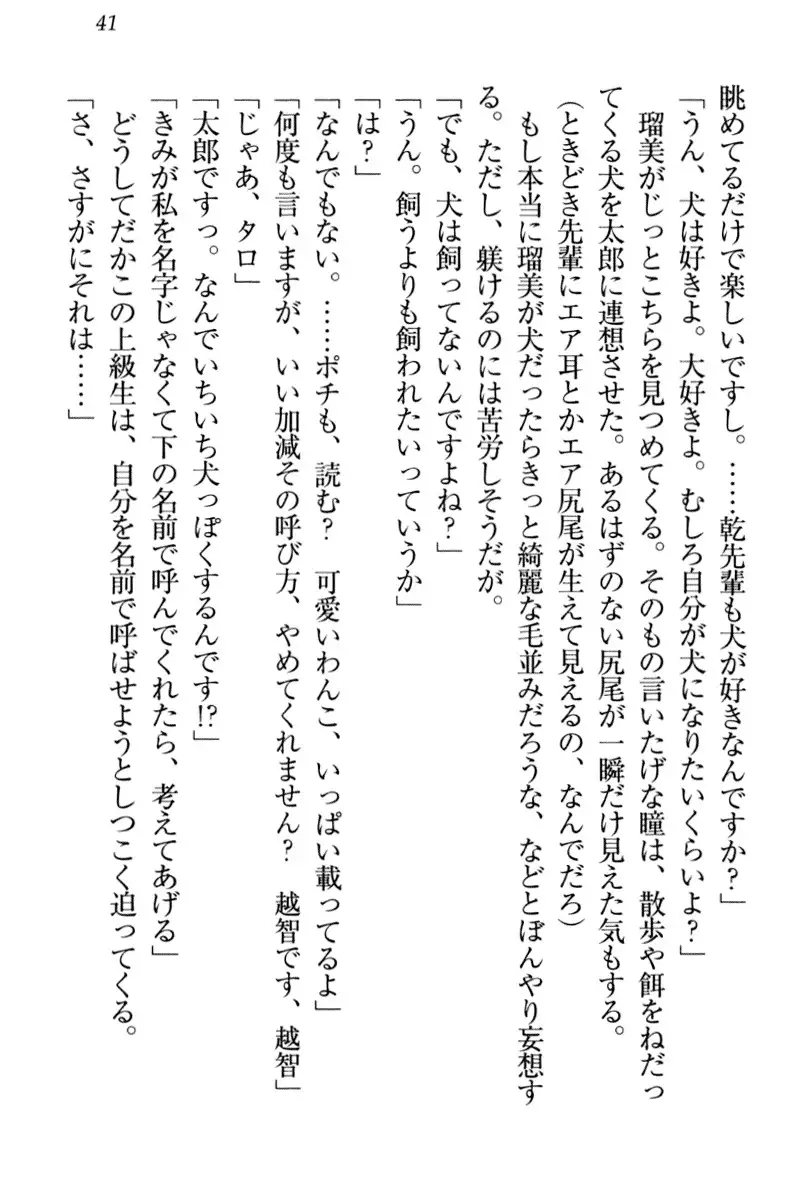 41
眺めてるだけで楽しいですし。……乾先輩も犬が好きなんですか？」
「うん、犬は好きよ。大好きよ。むしろ自分が犬になりたいくらいよ？」
瑠美がじっとこちらを見つめてくる。そのもの言いたげな瞳は、散歩や餌をねだっ
てくる犬を太郎に連想させた。あるはずのない尻尾が一瞬だけ見えた気もする。
（ときどき先輩にエア耳とかエア尻尾が生えて見えるの、なんでだろ）
もし本当に瑠美が犬だったらきっと綺麗な毛並みだろうな、などとぼんやり妄想す
る。ただし、躾けるのには苦労しそうだが。
「でも、犬は飼ってないんですよね？」
「うん。飼うよりも飼われたいっていうか」
「は？」
「なんでもない。……ポチも、読む？　可愛いわんこ、いっぱい載ってるよ」
「何度も言いますが、いい加減その呼び方、やめてくれません？　越智です、越智」
「じゃあ、タロ」
「太郎ですっ。なんでいちいち犬っぽくするんです!?」
「きみが私を名字じゃなくて下の名前で呼んでくれたら、考えてあげる」
どうしてだかこの上級生は、自分を名前で呼ばせようとしつこく迫ってくる。
「さ、さすがにそれは……」